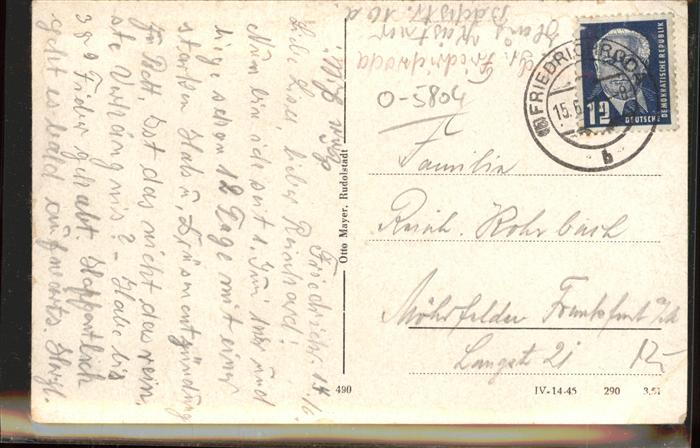 Friedrichr. 14/6.
Liebe Liesel, lieber Reinhard!
Nun bin ich seit 1. Juni hier und
liege schon 12 Tage mit einer
starken Hals u.
zu Bett. Ist das nicht das rein
ste Verhängnis? - Habe bis
39 Fieber gehabt. Hoffentlich
geht es bald aufwärts. Herzl.
Otto Mayer, Rudolstadt
490
Friedrichroda
O-5804
FRIEDRICHRODA
15.6.
b
12
DEUTSCHE
DEMOKRATISCHE REPUBLIK
Familie
Reinh. Rohrbach
Mörfelden Frankfurt
Langstr. 21
12,-
IV-14-45 290 3.51